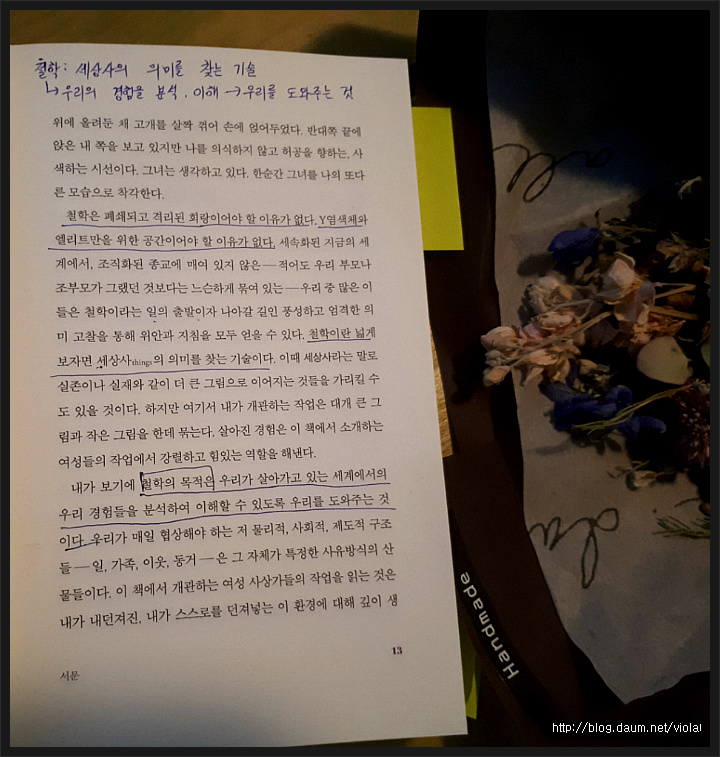 철학: 세상사의 의미를 찾는 기술
↳우리의 경험을 분석. 이해 →우리를 도와주는 것
위에 올려둔 채 고개를 살짝 꺾어 손에 얹어두었다. 반대쪽 끝에
앉은 내 쪽을 보고 있지만 나를 의식하지 않고 허공을 향하는, 사
색하는 시선이다. 그녀는 생각하고 있다. 한순간 그녀를 나의 또다
른 모습으로 착각한다.
철학은 폐쇄되고 격리된 회랑이어야 할 이유가 없다. Y염색체와
엘리트만을 위한 공간이어야 할 이유가 없다. 세속화된 지금의 세
계에서, 조직화된 종교에 매여 있지 않은―적어도 우리 부모나
조부모가 그랬던 것보다는 느슨하게 묶여 있는―우리 중 많은 이
들은 철학이라는 일의 출발이자 나아갈 길인 풍성하고 엄격한 의
미 고찰을 통해 위안과 지침을 모두 얻을 수 있다. 철학이란 넓게
보자면 세상사things의 의미를 찾는 기술이다. 이때 세상사라는 말로
실존이나 실재와 같이 더 큰 그림으로 이어지는 것들을 가리킬 수
도 있을 것이다. 하지만 여기서 내가 개관하는 작업은 대개 큰 그
림과 작은 그림을 한데 묶는다. 살아진 경험은 이 책에서 소개하는
여성들의 작업에서 강렬하고 힘있는 역할을 해낸다.
내가 보기에 철학의 목적은 우리가 살아가고 있는 세계에서의
우리 경험들을 분석하여 이해할 수 있도록 우리를 도와주는 것
이다. 우리가 매일 협상해야 하는 저 물리적, 사회적, 제도적 구조
들―일, 가족, 이웃, 동거―은 그 자체가 특정한 사유방식의 산
물들이다. 이 책에서 개관하는 여성 사상가들의 작업을 읽는 것은
내가 내던져진, 내가 스스로를 던져넣는 이 환경에 대해 깊이 생
13
서문
Handmade
http://blog.daum.net/viola